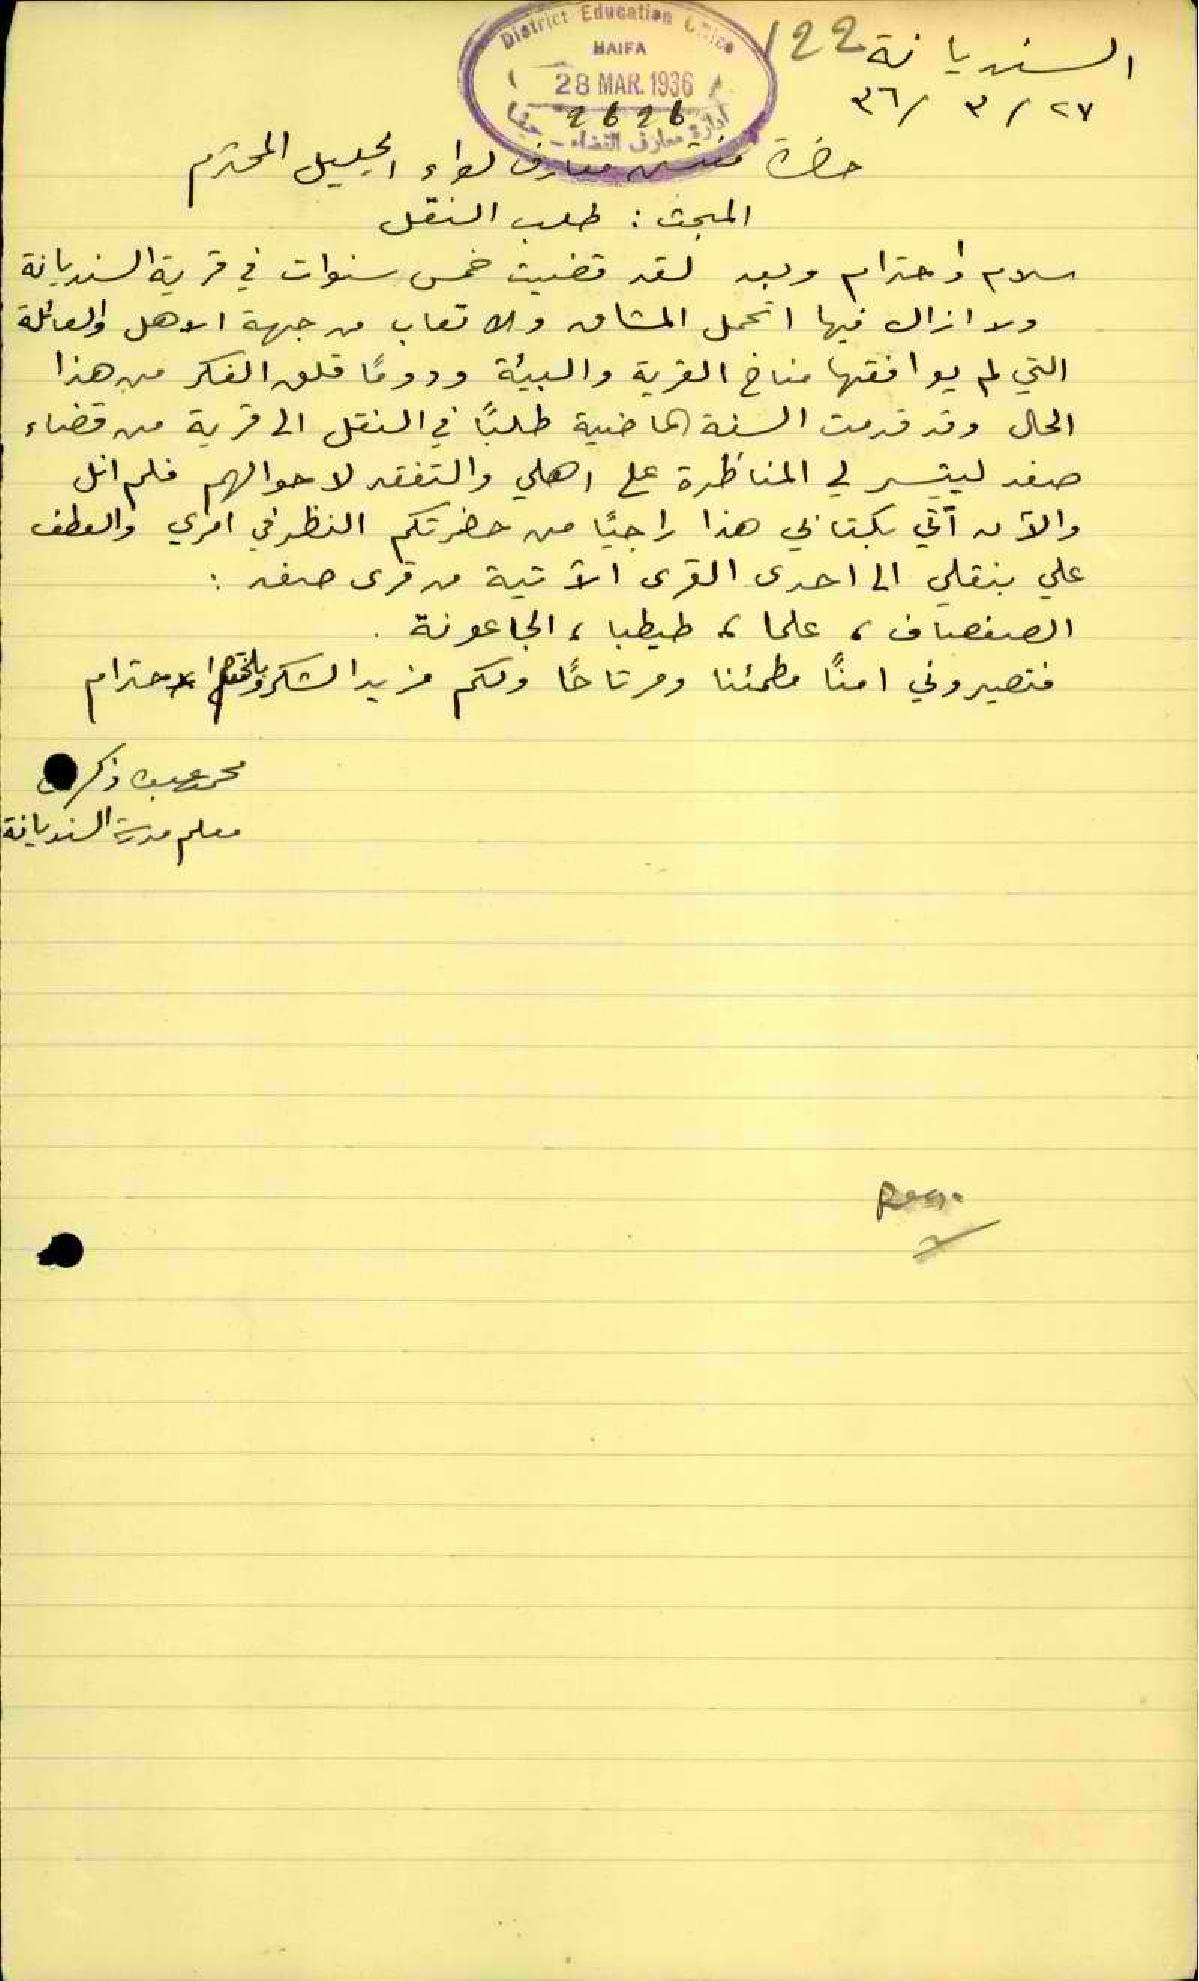 السنديانة 122
٢٧ / ٣ / ٣٦
District Education Office
HAIFA
28 MAR. 1936
2626
ادارة معارف القضاء - حيفا
حضرة مفتش معارف لواء الجليل المحترم
المبحث : طلب النقل
سلام واحترام وبعد لقد قضيت خمس سنوات في قرية السنديانة
ولا ازال فيها اتحمل المشاق والاتعاب من جهة الاهل والعائلة
التي لم يوافقها مناخ القرية والبيئة ودومًا قلق الفكر من هذا
الحال وقد قدمت السنة الماضية طلبًا في النقل الى قرية من قضاء
صفد ليتيسر لي المناظرة على اهلي والتفقد لاحوالهم فلم انل
والآن آتي بكتابي هذا راجيًا من حضرتكم النظر في امري والعطف
علي بنقلي الى احدى القرى الآتية من قرى صفد :
الصفصاف ، علما ، طيطبا ، الجاعونة .
فتصيروني امنًا مطمئنا ومرتاحًا ولكم مزيد الشكر احترام
محمد ذكر
معلم مدرسة السنديانة
Reg.